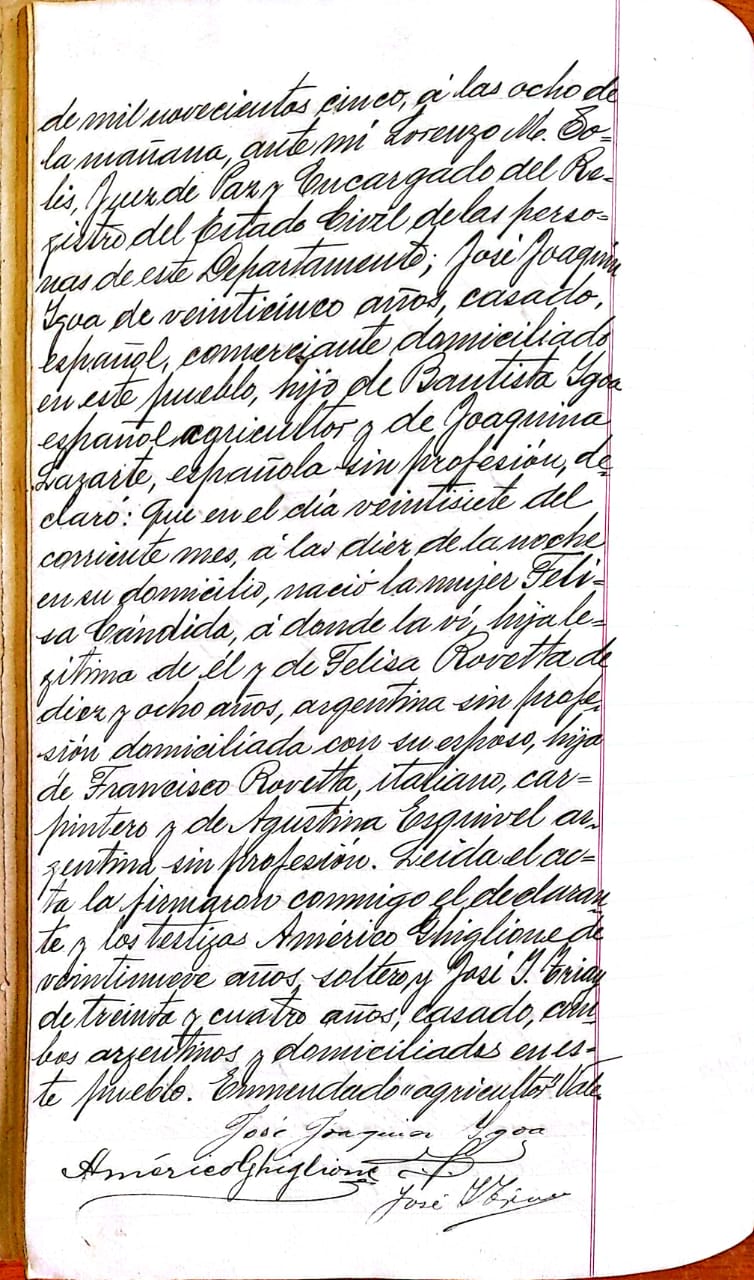 de mil novecientos cinco, á las ocho de
la mañana, ante mí Lorenzo M. So=
lis, Juez de Paz y Encargado del Re=
gistro del Estado Civil de las perso=
nas de este Departamento; José Joaquin
Ygoa de veinticinco años, casado,
español, comerciante domiciliado
en este pueblo, hijo de Bautista Ygoa
español agricultor y de Joaquina
Lazarte, española sin profesión, de=
claró: Que en el día veintisiete del
corriente mes, á las diez de la noche
en su domicilio, nació la mujer Feli=
sa Cándida, á donde la ví, hija le=
gitima de él y de Felisa Rovetta de
diez y ocho años, argentina sin profe=
sión domiciliada con su esposo, hija
de Francisco Rovetta, italiano, car=
pintero y de Agustina Esquivel ar=
gentina sin profesión. Leida el ac=
ta la firmaron conmigo el declaran=
te y los testigos Américo Ghiglione de
veintinueve años, soltero y José I.
de treinta y cuatro años, casado, am=
bos argentinos y domiciliados en es=
te pueblo. Enmendado "agricultor" Vale.
José Joaquin Ygoa
Américo Ghiglione
José I.